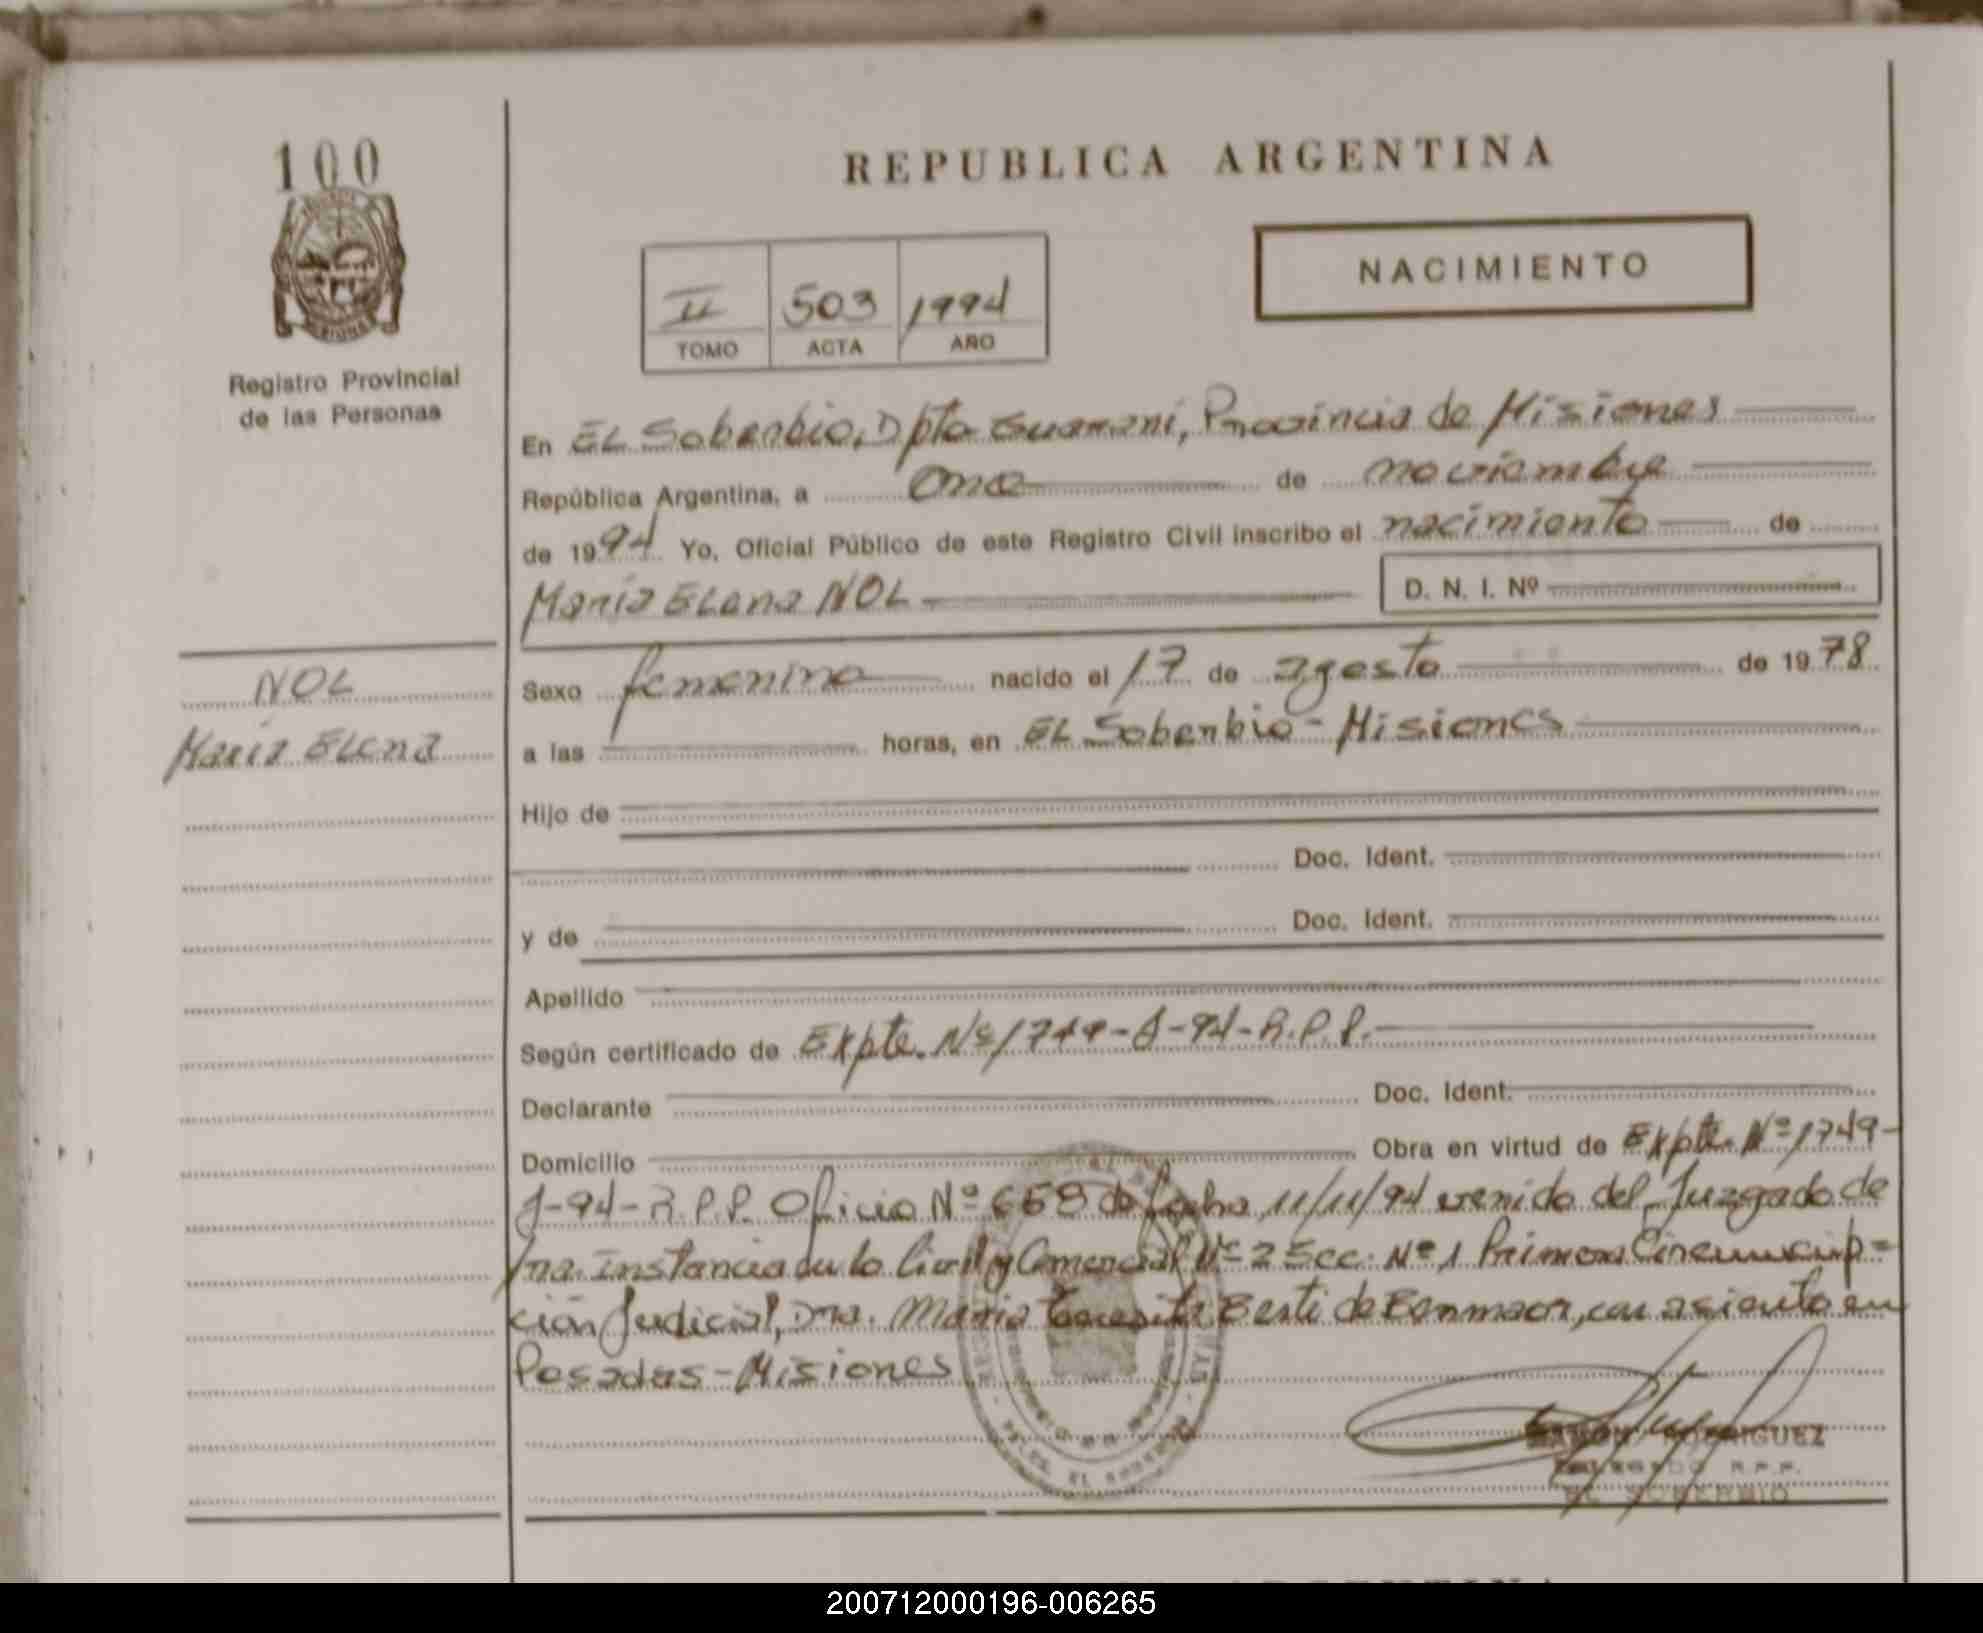 100
REPUBLICA ARGENTINA
NACIMIENTO
II 503 1994
TOMO ACTA AÑO
Registro Provincial
de las Personas
En EL Soberbio, Dpto Guaraní, Provincia de Misiones
República Argentina, a Once de noviembre
de 1994 Yo, Oficial Público de este Registro Civil inscribo el nacimiento de
María ELena NOL D. N. I. Nº
NOL
María ELena
Sexo femenino nacido el 17 de agosto de 1978
a las horas, en EL Soberbio - Misiones
Hijo de
Doc. Ident.
y de Doc. Ident.
Apellido
Según certificado de Expte. Nº 1749-J-94-R.P.P.
Declarante Doc. Ident.
Domicilio Obra en virtud de Expte. Nº 1749-
J-94-R.P.P. Oficio Nº 659 de fecha 11/11/94 venido del Juzgado de
1ra. Instancia en lo Civil y Comercial Nº 2 Sec. Nº 1 Primera Circunscrip=
ción Judicial, Dra. María Teresita Berti de Benmaor, con asiento en
Posadas - Misiones
RODRIGUEZ
DELEGADO R.P.P.
EL SOBERBIO
200712000196-006265